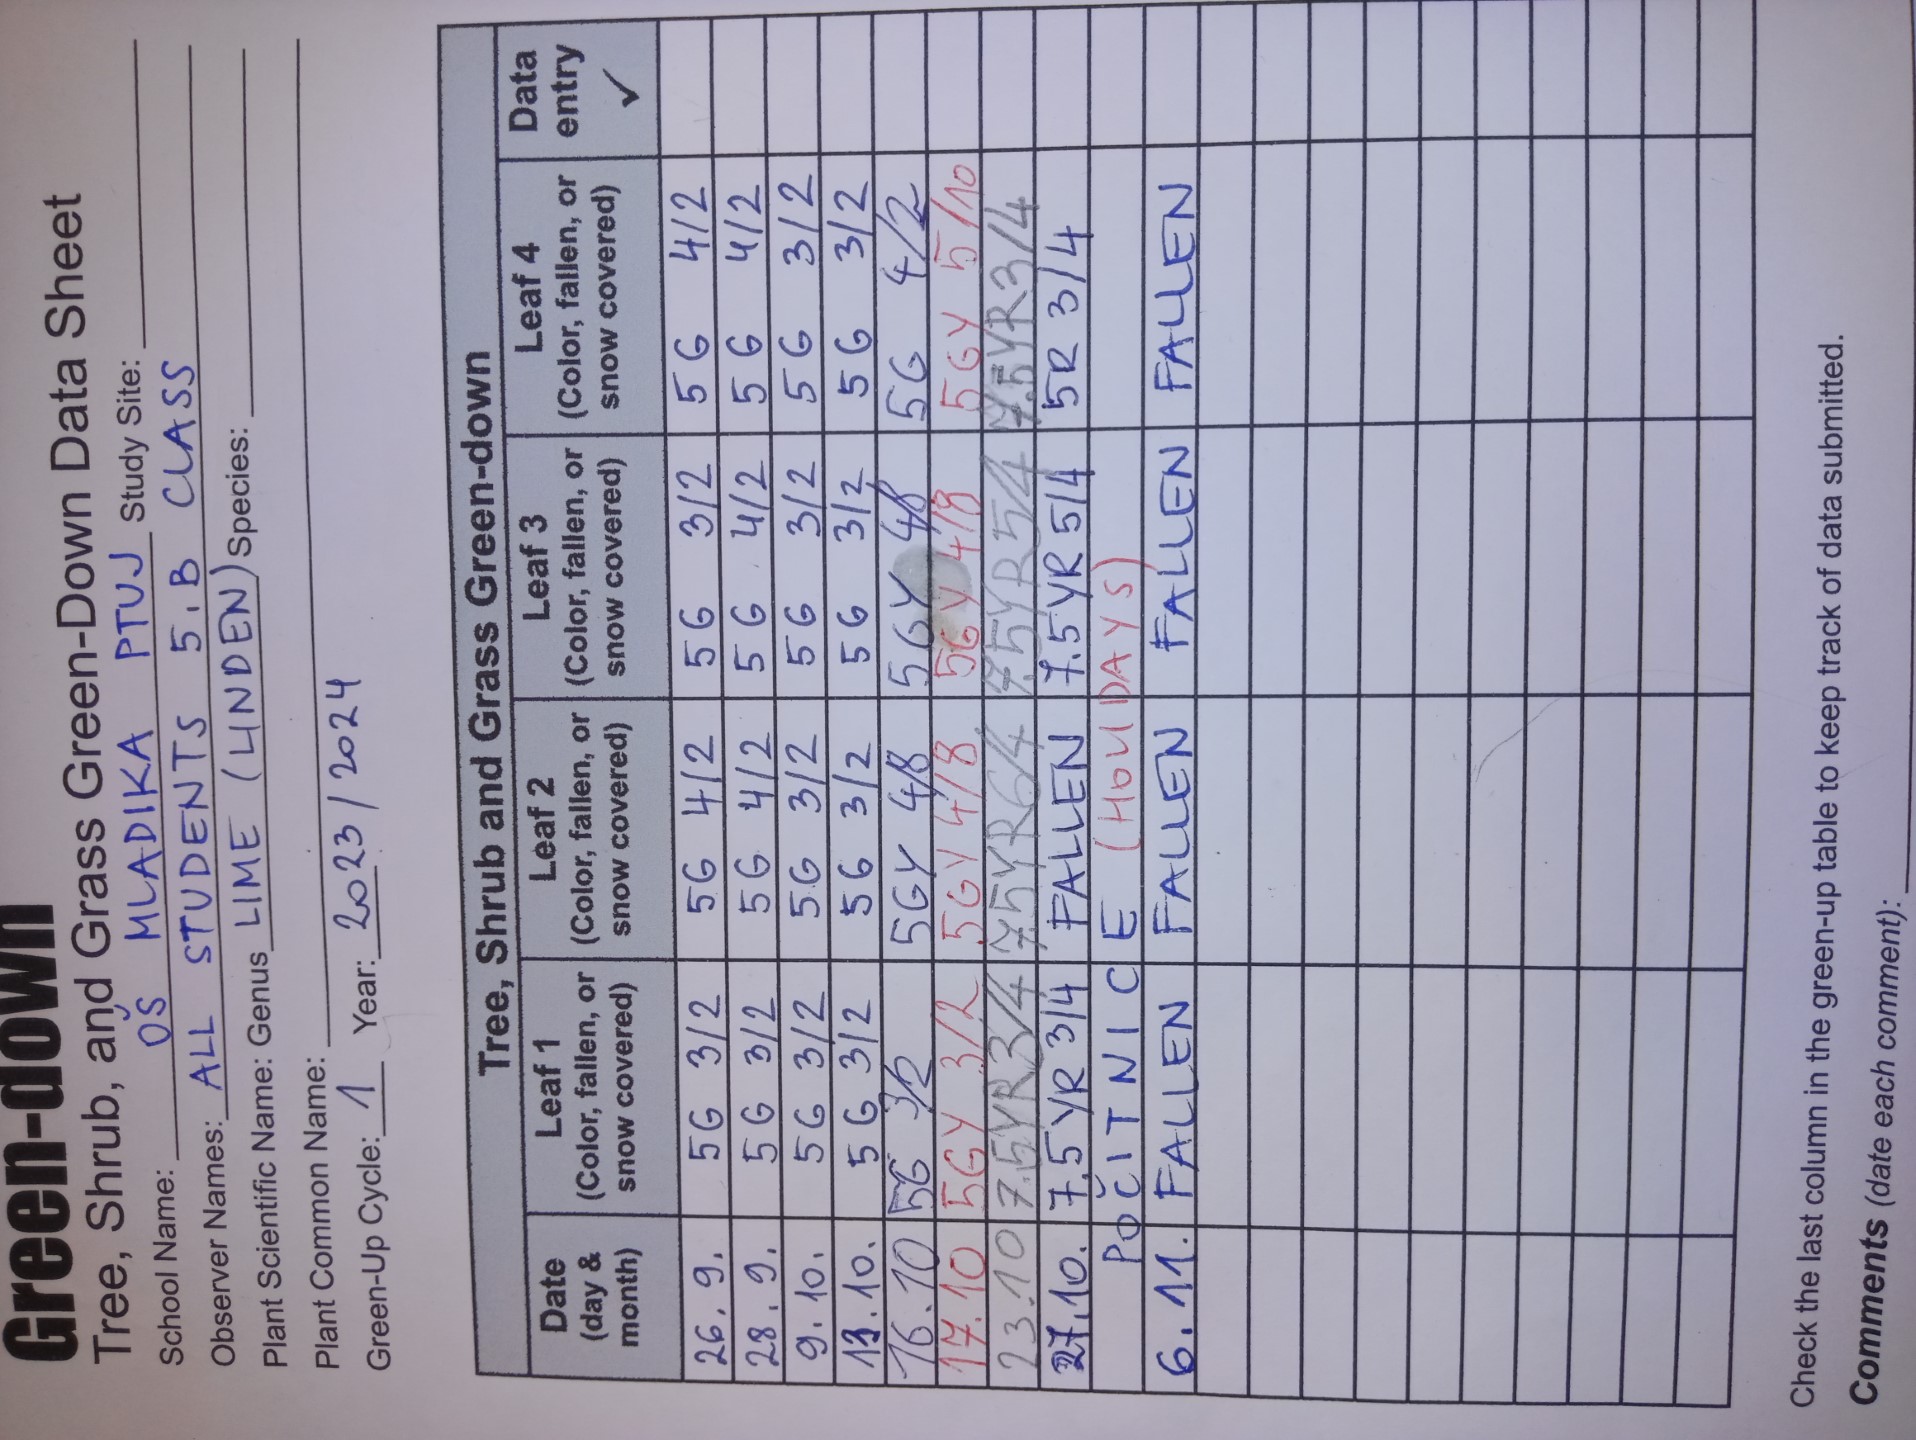 Green-down
Tree, Shrub, and Grass Green-Down Data Sheet
School Name: OŠ MLADIKA PTUJ Study Site:
Observer Names: ALL STUDENTS 5.B CLASS
Plant Scientific Name: Genus LIME (LINDEN) Species:
Plant Common Name:
Green-Up Cycle: 1 Year: 2023/2024
Tree, Shrub and Grass Green-down
Date (day & month) Leaf 1 (Color, fallen, or snow covered) Leaf 2 (Color, fallen, or snow covered) Leaf 3 (Color, fallen, or snow covered) Leaf 4 (Color, fallen, or snow covered) Data entry ✓
26.9. 5G 3/2 5G 4/2 5G 3/2 5G 4/2
28.9. 5G 3/2 5G 4/2 5G 4/2 5G 4/2
9.10. 5G 3/2 5G 3/2 5G 3/2 5G 3/2
13.10. 5G 3/2 5G 3/2 5G 3/2 5G 3/2
16.10 5G 3/2 5GY 4/8 5GY 4/8 5G 4/2
17.10 5GY 3/2 5GY 4/8 5GY 4/8 5GY 5/10
23.10 7.5YR3/4 7.5YR6/4 7.5YR5/4 7.5YR3/4
27.10. 7.5YR 3/4 FALLEN 7.5YR 5/4 5R 3/4
POČITNICE (HOLIDAYS)
6.11. FALLEN FALLEN FALLEN FALLEN
Check the last column in the green-up table to keep track of data submitted.
Comments (date each comment):